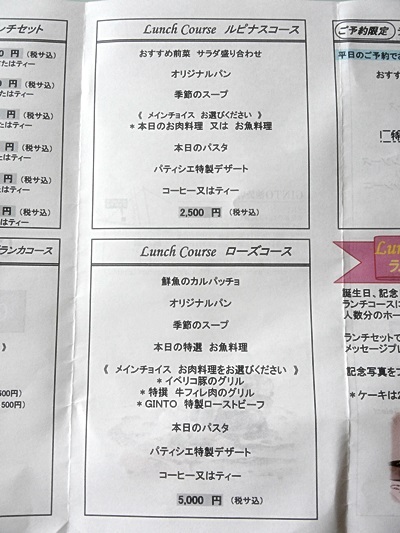 ンチセット
0 円 (税サ込)
たはティー
円 (税サ込)
たはティー
円 (税サ込)
たはティー
円 (税サ込)
はティー
円 (税サ込)
はティー
円 (税サ込)
はティー
ランカコース
Lunch Course ルピナスコース
おすすめ前菜 サラダ盛り合わせ
オリジナルパン
季節のスープ
《 メインチョイス お選びください 》
* 本日のお肉料理 又は お魚料理
本日のパスタ
パティシエ特製デザート
コーヒー又はティー
2,500 円 (税サ込)
Lunch Course ローズコース
鮮魚のカルパッチョ
オリジナルパン
季節のスープ
本日の特選 お魚料理
《 メインチョイス お肉料理をお選びください 》
* イベリコ豚のグリル
* 特撰 牛フィレ肉のグリル
* GINTO 特製ローストビーフ
本日のパスタ
パティシエ特製デザート
コーヒー又はティー
5,000 円 (税サ込)
ご予約限定
平日のご予約でお
おすす
誕生日、記念
ランチコースに
人数分のホー
ランチセットで
メッセージプレ
記念写真をプ
* ケーキは2